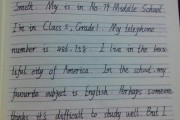 Smith. My is in No.79 Middle School.
I'm in Class 5, Grade 1. My telephone
number is I live in the beau
tiful city of America. In the school, my
favourite subject is English. Perhaps someone
thinks it's difficult to study well. But I